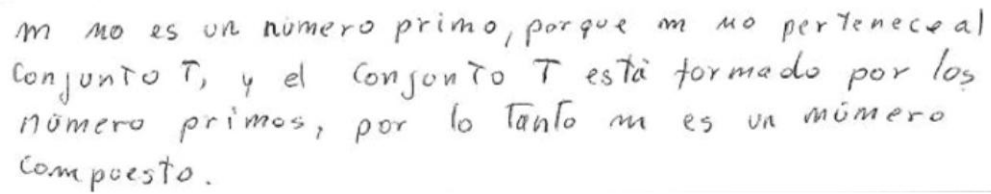 m no es un número primo, porque m no pertenece al
conjunto T, y el conjunto T está formado por los
número primos, por lo tanto m es un número
compuesto.